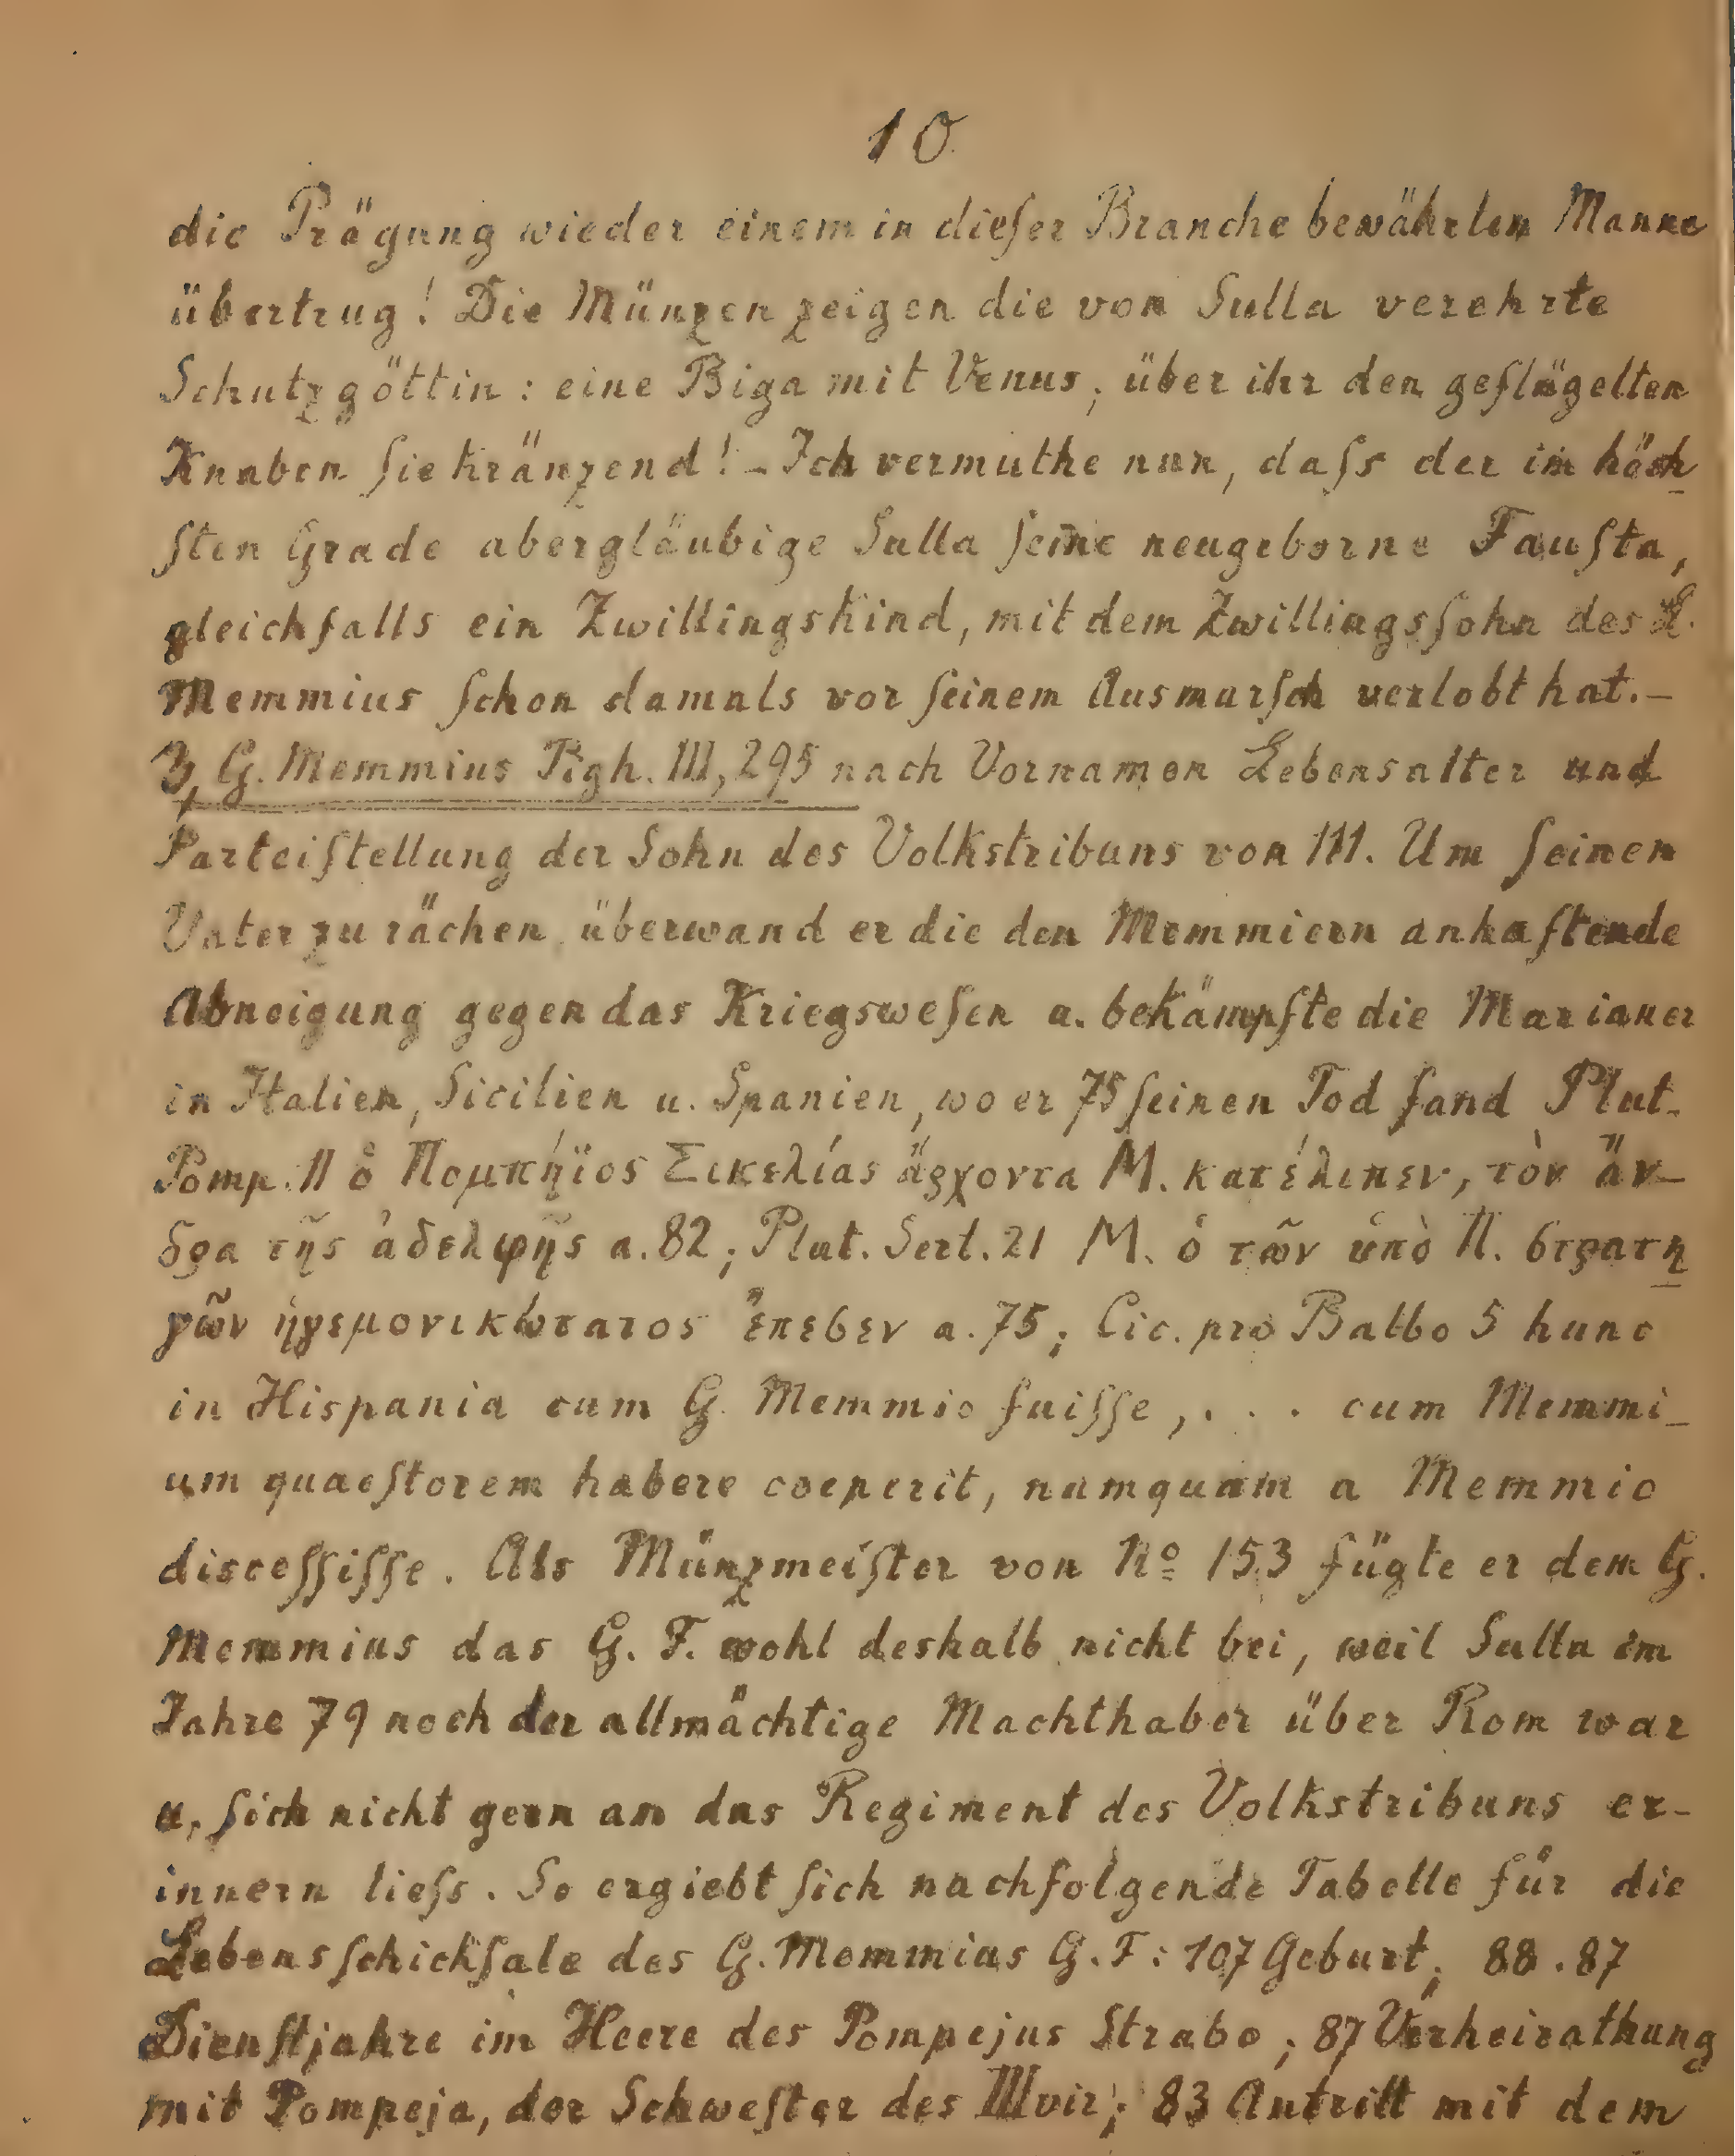 10.
die Prägung wieder einem in dieſer Branche bewährten Manne
übertrug! Die Münzen zeigen die von Sulla verehrte
Schutzgöttin: eine Biga mit Venus, über ihr den geflügelten
Knaben ſie kränzend! – Ich vermuthe nun, daſs der im höch-
ſten Grade abergläubige Sulla ſeine neugeborne Fauſta,
gleichfalls ein Zwillingskind, mit dem Zwillingsſohn des L.
Memmius ſchon damals vor ſeinem Ausmarſch verlobt hat. –
3, G. Memmius Pigh. III, 295 nach Vornamen Lebensalter und
Parteiſtellung der Sohn des Volkstribuns von 111. Um ſeinen
Vater zu rächen, überwand er die den Memmiern anhaftende
Abneigung gegen das Kriegsweſen u. bekämpfte die Marianer
in Italien, Sicilien u. Spanien, wo er 75 ſeinen Tod fand Plut.
Pomp. 11 ὁ Πομπήϊος Σικελίας ἄρχοντα Μ. κατέλιπεν, τὸν ἄν-
δρα τῆς ἀδελφῆς a. 82; Plut. Sert. 21 Μ. ὁ τῶν ὑπὸ Π. στρατη-
γῶν ἡγεμονικώτατος ἔπεσεν a. 75; Cic. pro Balbo 5 hunc
in Hispania cum G. Memmio fuiſſe, . . . cum Memmi-
um quaeſtorem habere coeperit, numquam a Memmio
disceſſiſſe. Als Münzmeiſter von Nº 153 fügte er dem G.
Memmius das G. F. wohl deshalb nicht bei, weil Sulla im
Jahre 79 noch der allmächtige Machthaber über Rom war
u. ſich nicht gern an das Regiment des Volkstribuns er-
innern lieſs. So ergiebt ſich nachfolgende Tabelle für die
Lebensſchickſale des G. Memmius G. F: 107 Geburt; 88. 87
Dienſtjahre im Heere des Pompejus Strabo; 87 Verheirathung
mit Pompeja, der Schweſter des IIIvir; 83 Antritt mit dem